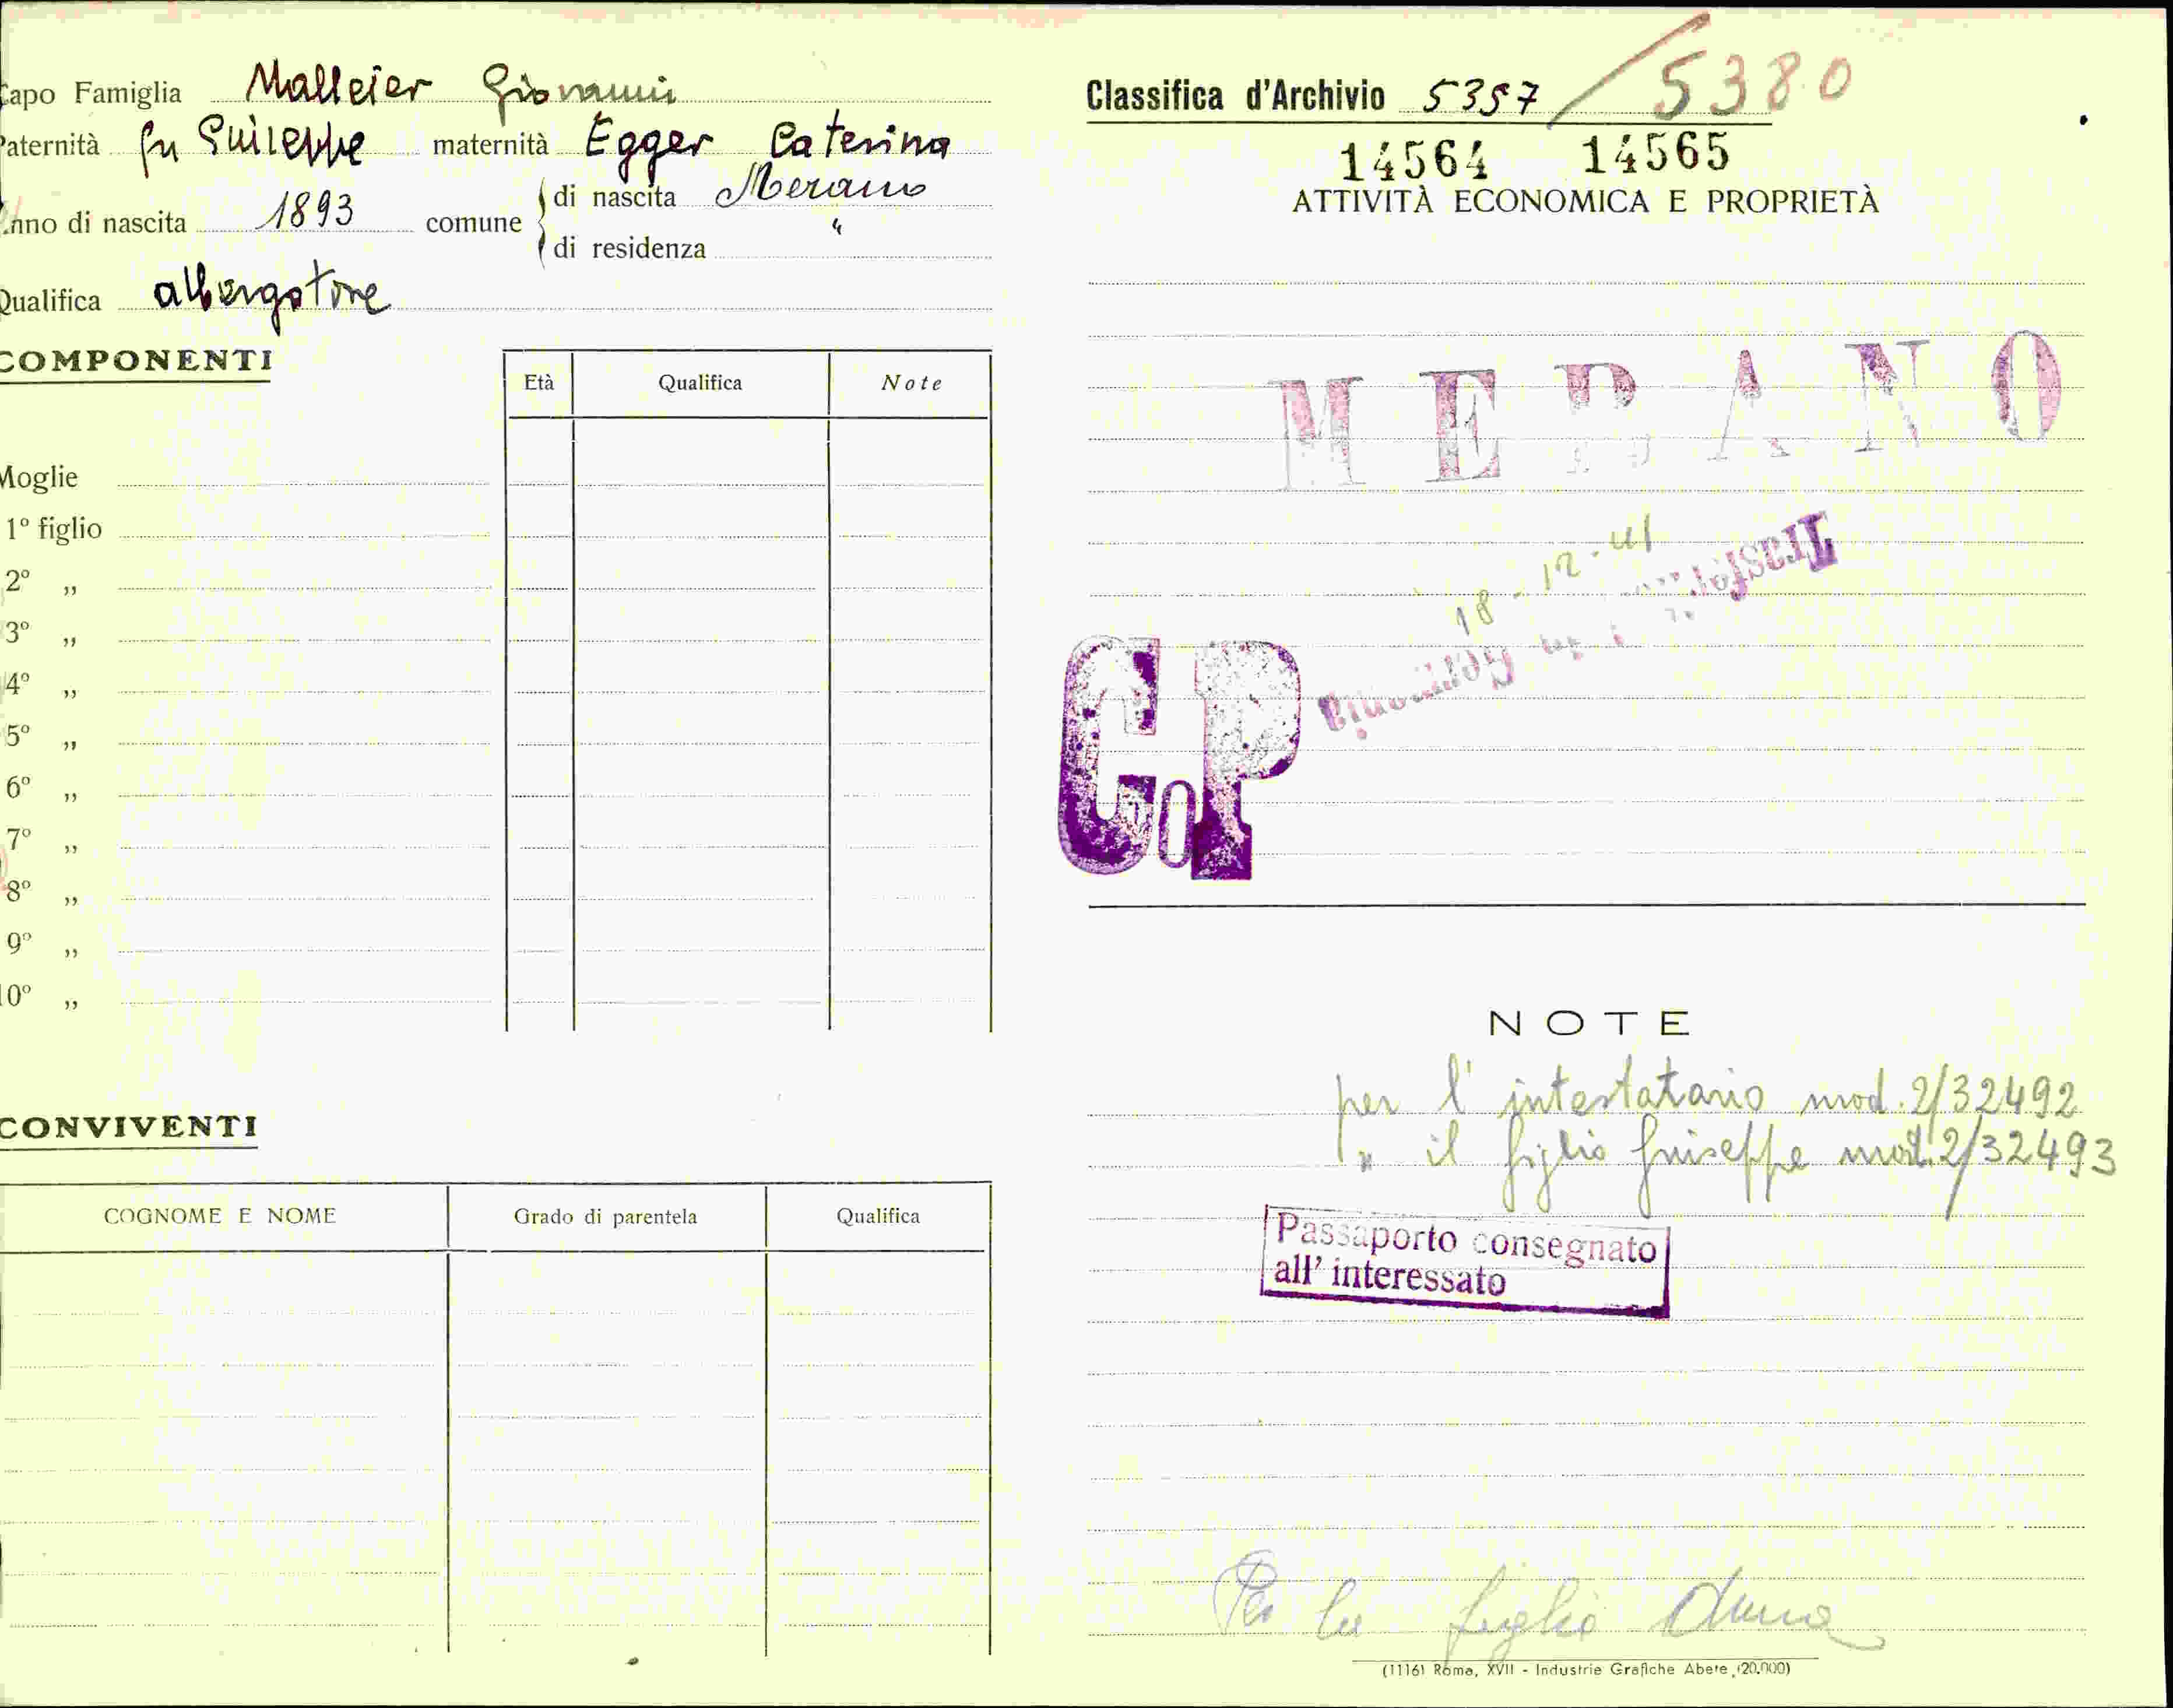 Capo Famiglia Malleier Giovanni
Paternità fu Guiseppe maternità Egger Caterina
Anno di nascita 1893 comune di nascita Merano
di residenza "
Qualifica albergatore
COMPONENTI
Età Qualifica Note
Moglie
1º figlio
2º „
3º „
4º „
5º „
6º „
7º „
8º „
9º „
10º „
CONVIVENTI
COGNOME E NOME Grado di parentela Qualifica
Classifica d'Archivio 5357 / 5380
14564 14565
ATTIVITÀ ECONOMICA E PROPRIETÀ
MERANO
18-12-41
in Germania
CoP
NOTE
per l' intestatario mod. 2/32492
" il figlio Guiseppe mod. 2/32493
Passaporto consegnato
all' interessato
Per la figlia Anna
(11161 Roma, XVII - Industrie Grafiche Abete (20.000)